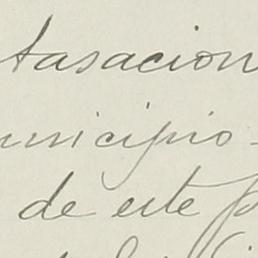 tasacion
unicipio -
de este